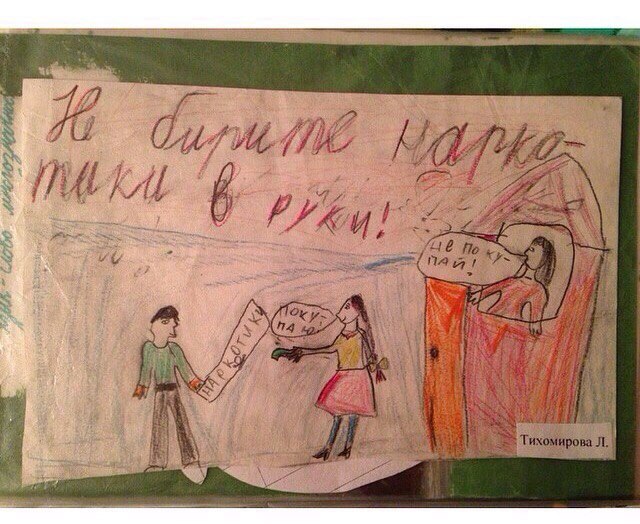 Не бирите нарко-
тики в руки!
не поку-
пай!
поку-
паю
наркотики
Тихомирова Л.